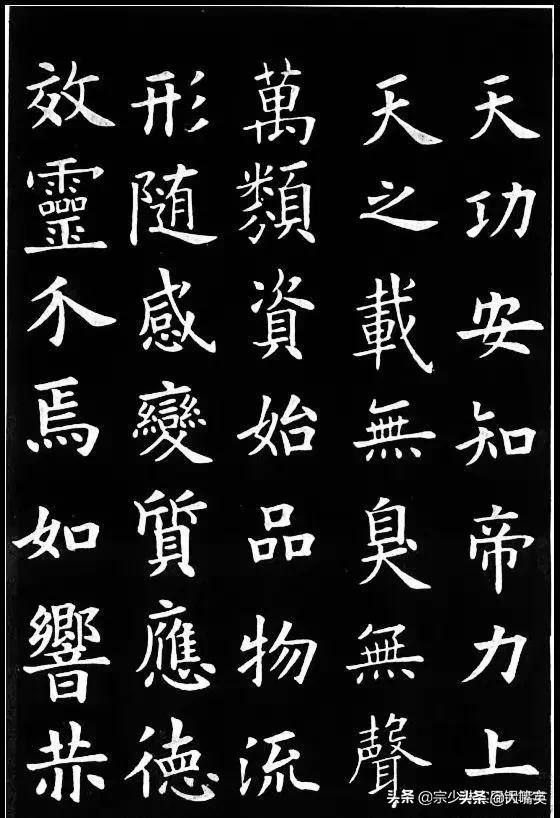 天功安知帝力上
天之載無臭無聲
萬類資始品物流
形隨感變質應德
效靈介焉如響赫
头条 @宗少
头条 @大嘴英